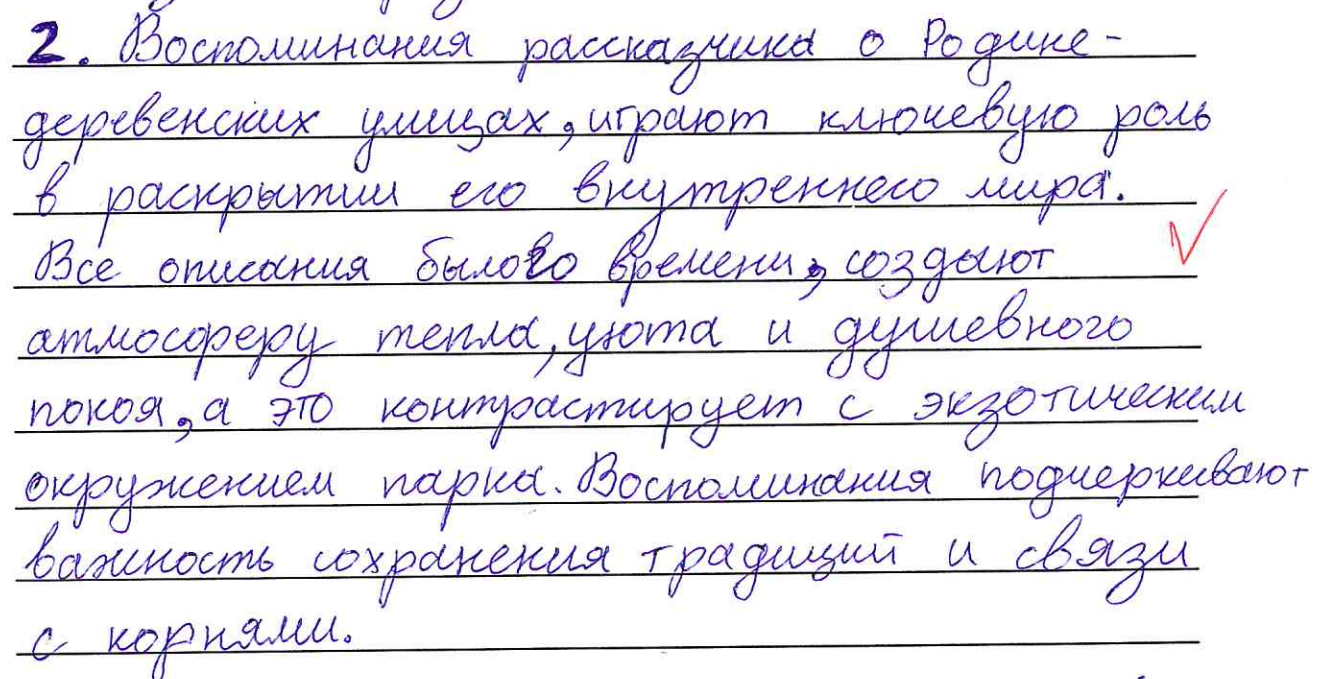 2. Воспоминания рассказчика о Родине-
деревенских улицах, играют ключевую роль
в раскрытии его внутреннего мира.
Все описания былого времени, создают
атмосферу тепла, уюта и душевного
покоя, а это контрастирует с экзотическим
окружением парка. Воспоминания подчеркивают
важность сохранения традиций и связи
с корнями.